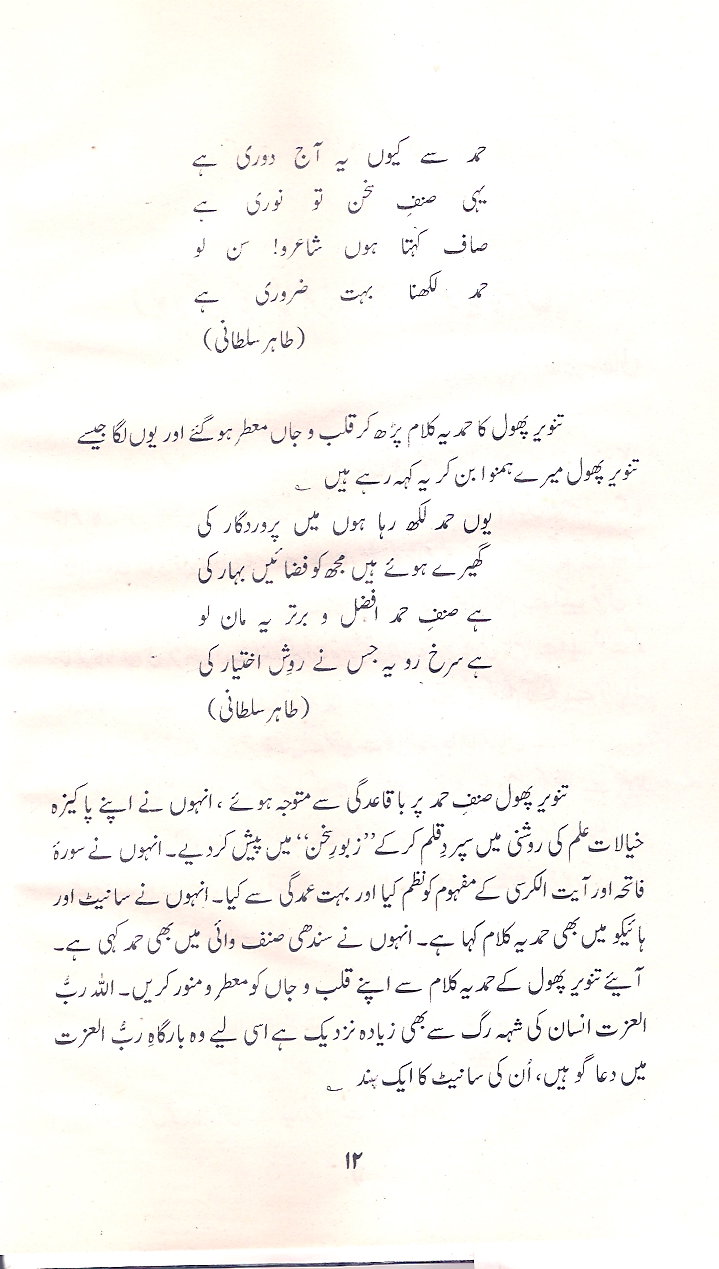 حمد سے کیوں یہ آج دوری ہے
یہی صنفِ سخن تو نوری ہے
صاف کہتا ہوں شاعرو! سن لو
حمد لکھنا بہت ضروری ہے
(طاہر سلطانی)
تنویر پھول کا حمدیہ کلام پڑھ کر قلب و جاں معطر ہو گئے اور یوں لگا جیسے
تنویر پھول میرے ہمنوا بن کر یہ کہہ رہے ہیں ؎
یوں حمد لکھ رہا ہوں میں پروردگار کی
گھیرے ہوئے ہیں مجھ کو فضائیں بہار کی
ہے صنفِ حمد افضل و برتر یہ مان لو
ہے سرخ رو یہ جس نے روِش اختیار کی
(طاہر سلطانی)
تنویر پھول صنفِ حمد پر باقاعدگی سے متوجہ ہوئے ، انہوں نے اپنے پاکیزہ
خیالات علم کی روشنی میں سپردِ قلم کر کے ’’زبورِ سخن‘‘ میں پیش کر دیے۔ انہوں نے سورۂ
فاتحہ اور آیت الکرسی کے مفہوم کو نظم کیا اور بہت عمدگی سے کیا۔ انہوں نے سانیٹ اور
ہائیکو میں بھی حمدیہ کلام کہا ہے۔ انہوں نے سندھی صنف وائی میں بھی حمد کہی ہے۔
آیئے تنویر پھول کے حمدیہ کلام سے اپنے قلب و جاں کو معطر و منور کریں۔ اللہ ربُّ
العزت انسان کی شہہ رگ سے بھی زیادہ نزدیک ہے اسی لیے وہ بارگاہِ ربُّ العزت
میں دعا گو ہیں، اُن کی سانیٹ کا ایک بند ؎
۱۲